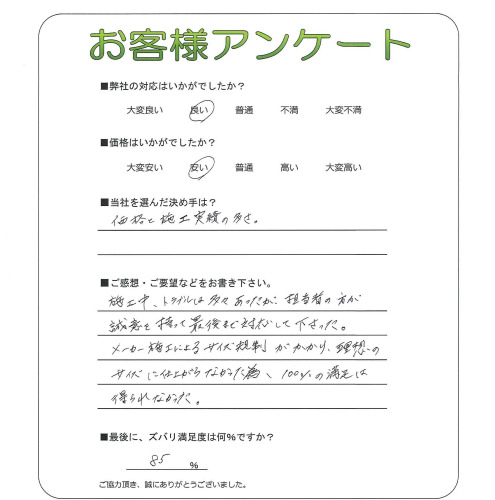 お客様アンケート
■弊社の対応はいかがでしたか？
大変良い 良い 普通 不満 大変不満
■価格はいかがでしたか？
大変安い 安い 普通 高い 大変高い
■当社を選んだ決め手は？
価格と施工実績の多さ。
■ご感想・ご要望などをお書き下さい。
施工中、トラブルは多々あったが、担当者の方が
誠意を持って最後まで対応して下さった。
メーカー施工によるサイズ規制がかかり、理想の
サイズに仕上がらなかった為、100%の満足は
得られなかった。
■最後に、ズバリ満足度は何%ですか？
85 %
ご協力頂き、誠にありがとうございました。